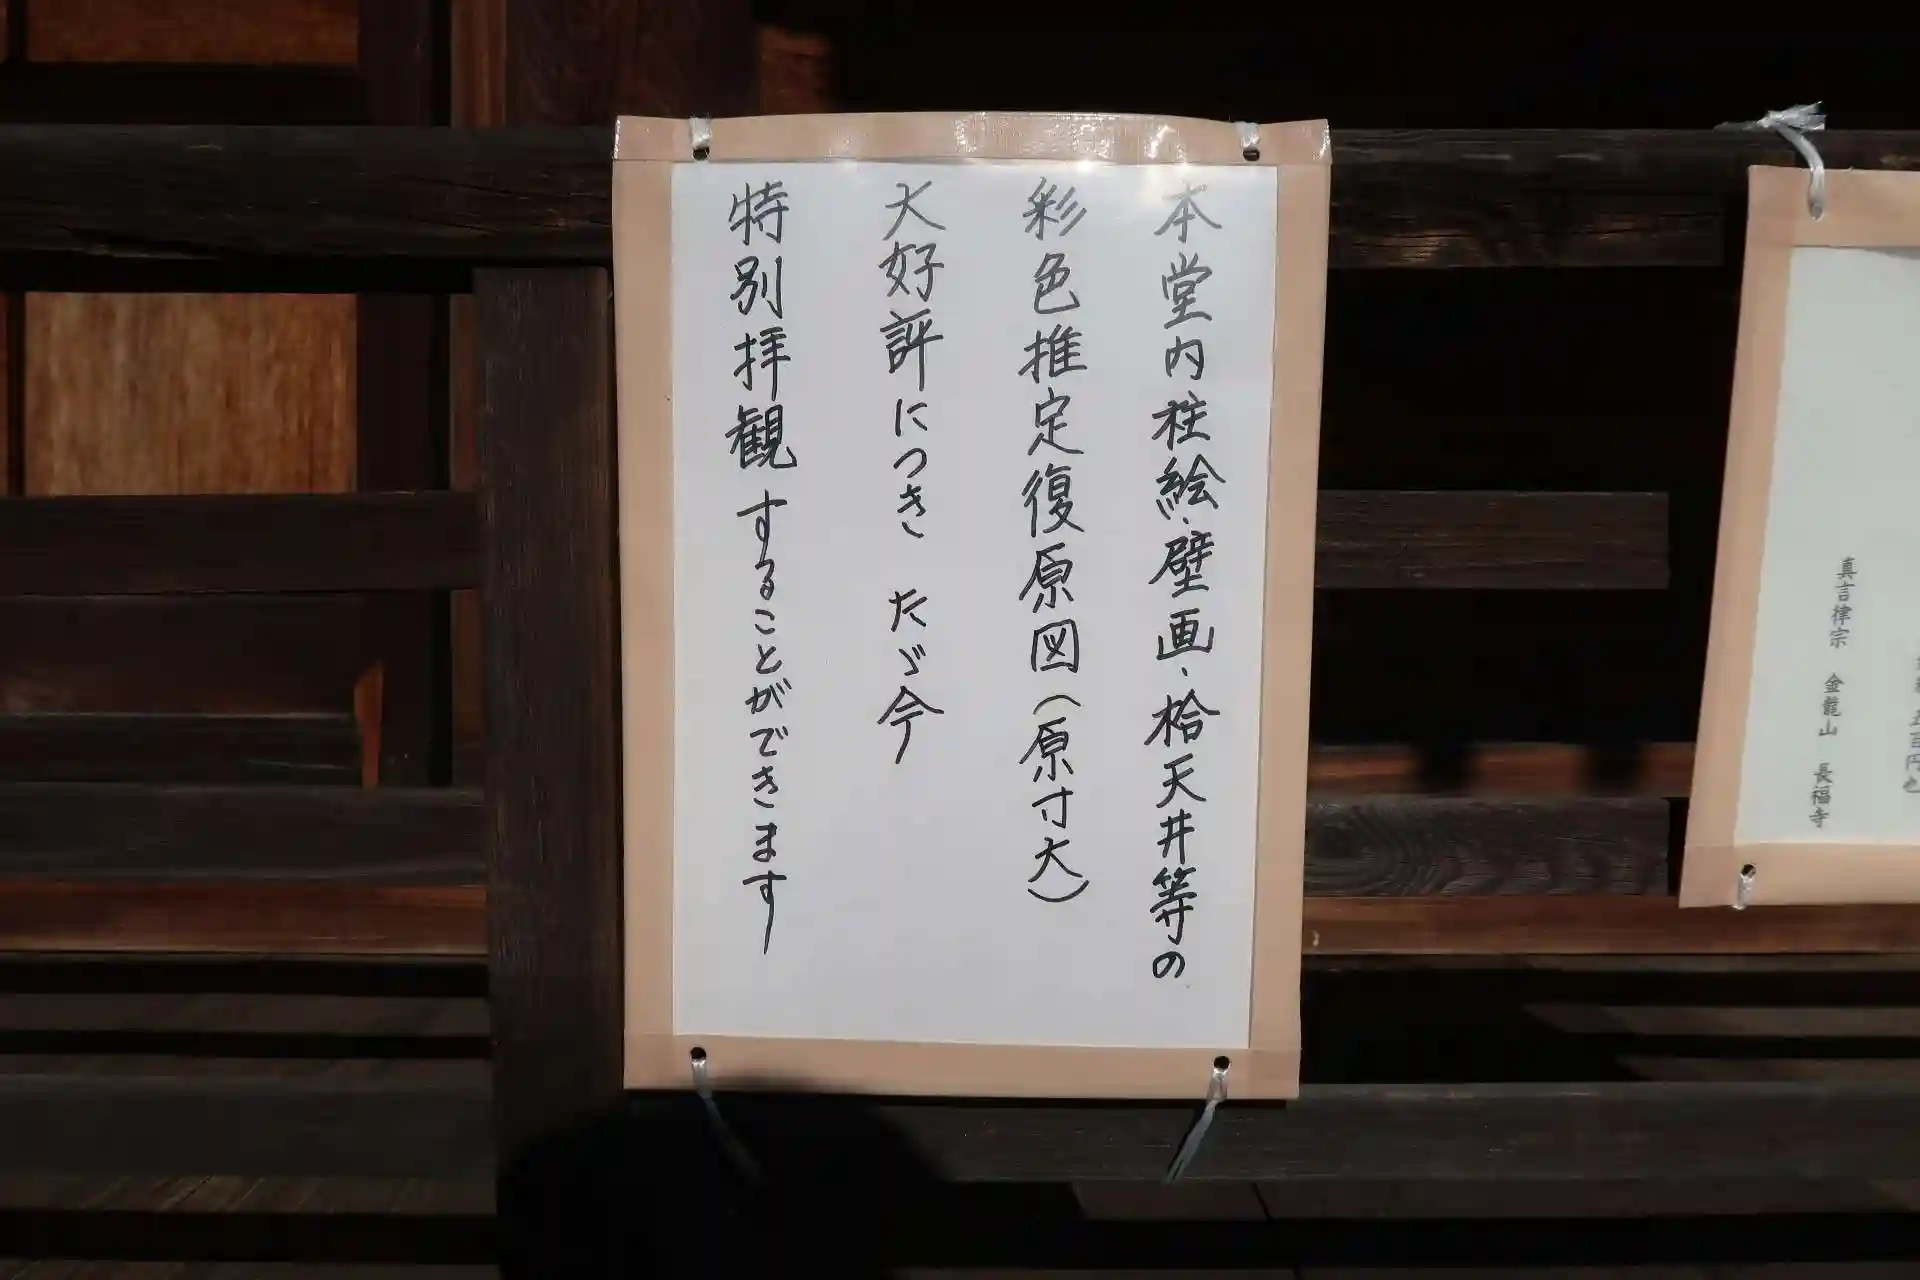 本堂内柱絵、壁画、拾天井等の
彩色推定復原図(原寸大)
大好評につき ただ今
特別拝観することができます
五百円也
真言律宗 金龍山 長福寺